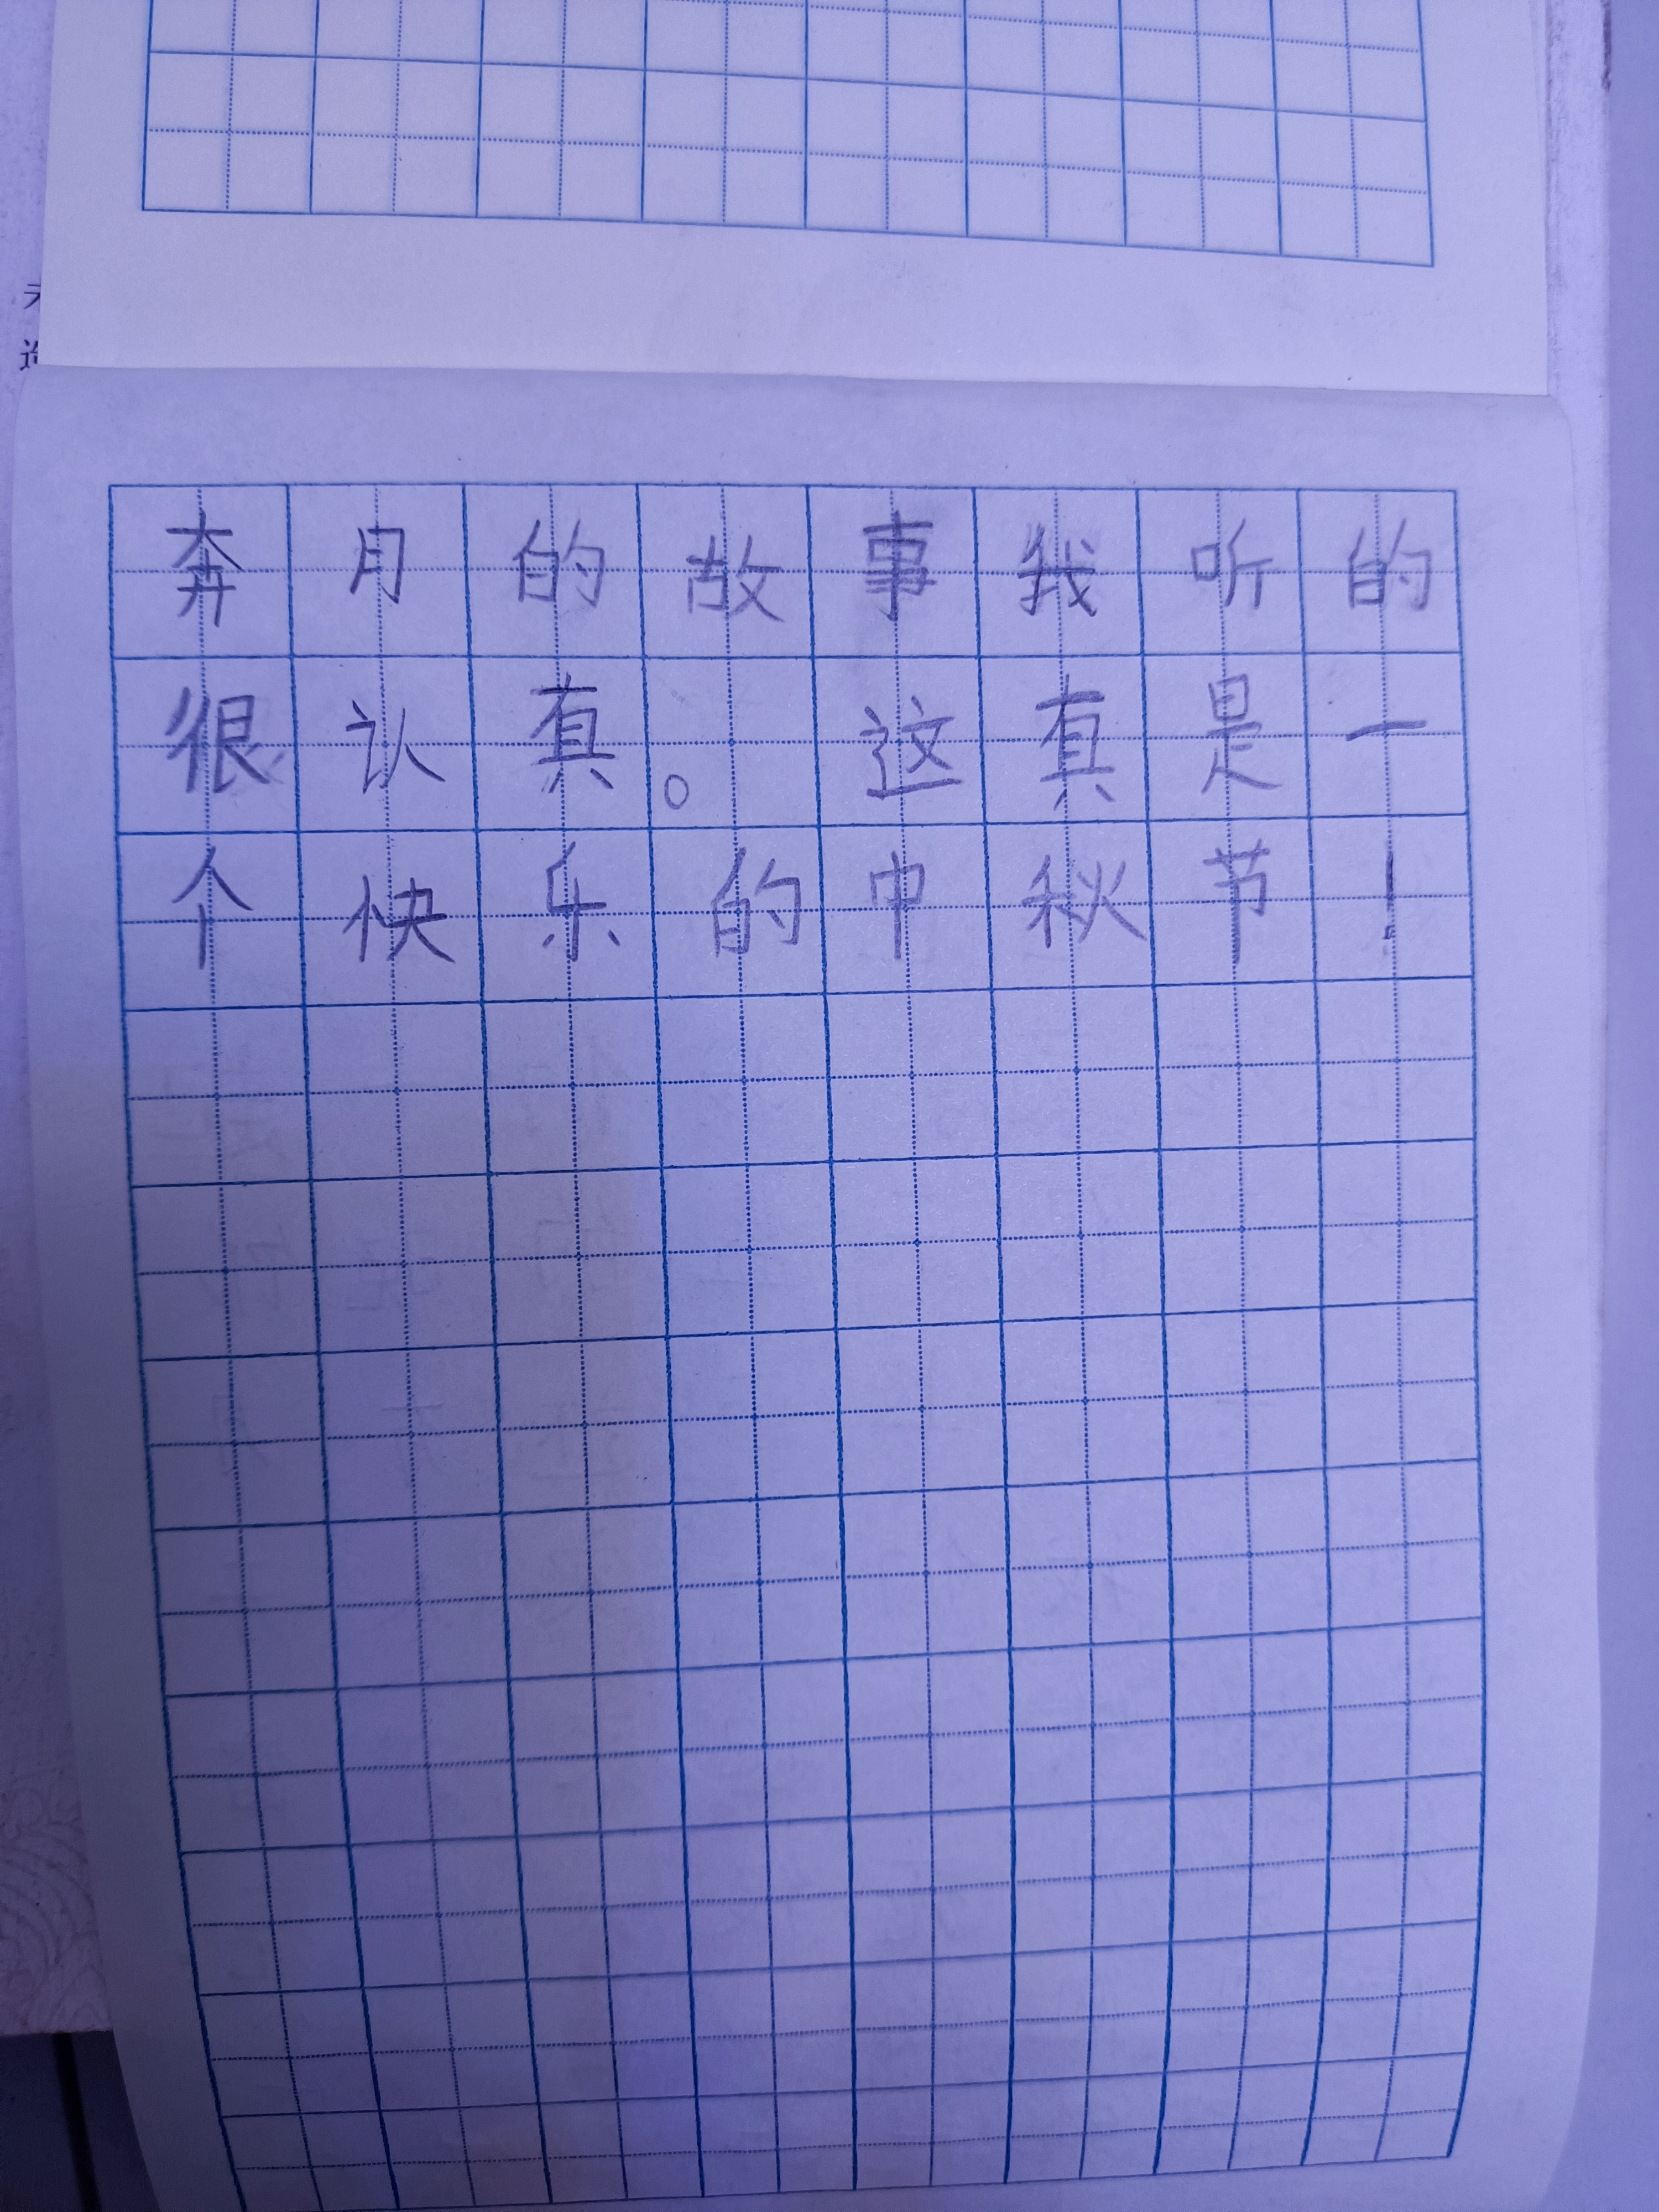 奔月的故事我听的
很认真。这真是一
个快乐的中秋节！